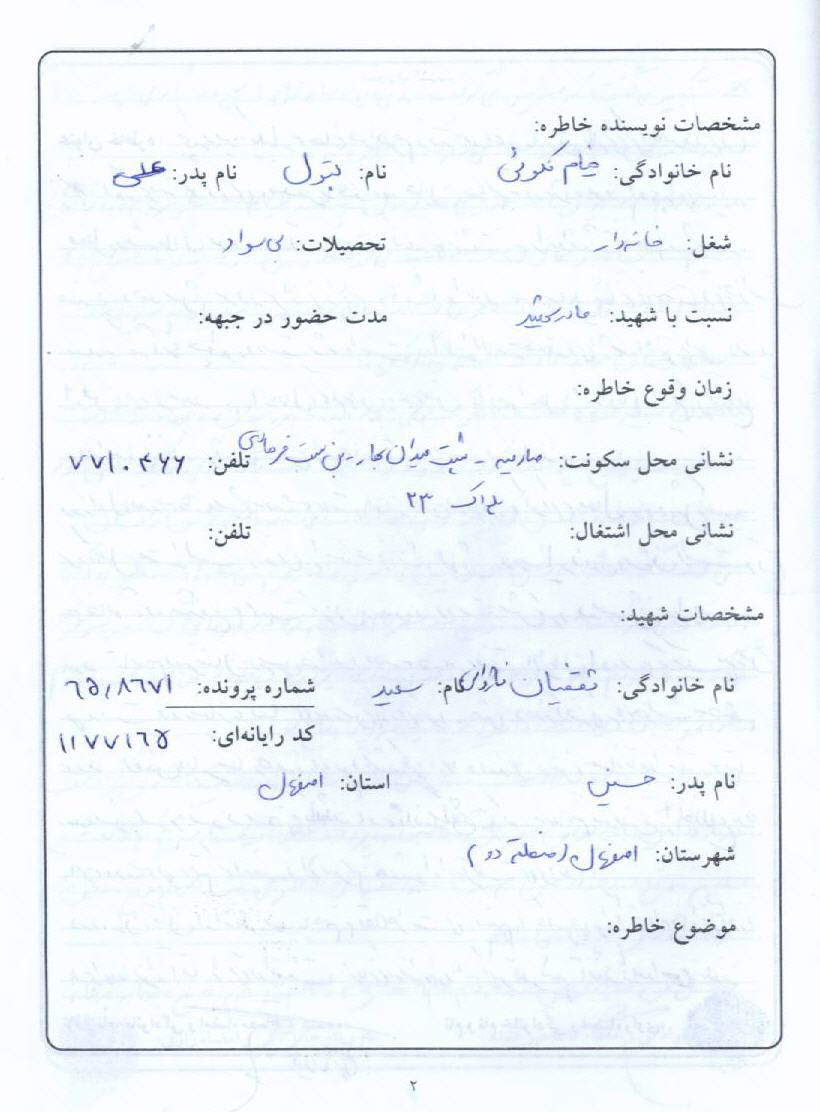 مشخصات نویسنده خاطره:
نام خانوادگی: نام: بتول نام پدر: علی
شغل: خانه‌دار تحصیلات: بی‌سواد
نسبت با شهید: مادر شهید مدت حضور در جبهه:
زمان وقوع خاطره:
نشانی محل سکونت: پشت میدان بن بست تلفن: ۷۷۱۰۴۶۶
پلاک ۲۳
نشانی محل اشتغال: تلفن:
مشخصات شهید:
نام خانوادگی: ثقفیان نام: سعید شماره پرونده: ۶۵/۸۶۷۱
کد رایانه‌ای: ۱۱۷۷۱۶۵
نام پدر: حسین استان: اصفهان
شهرستان: اصفهان (منطقه دو)
موضوع خاطره:
۲